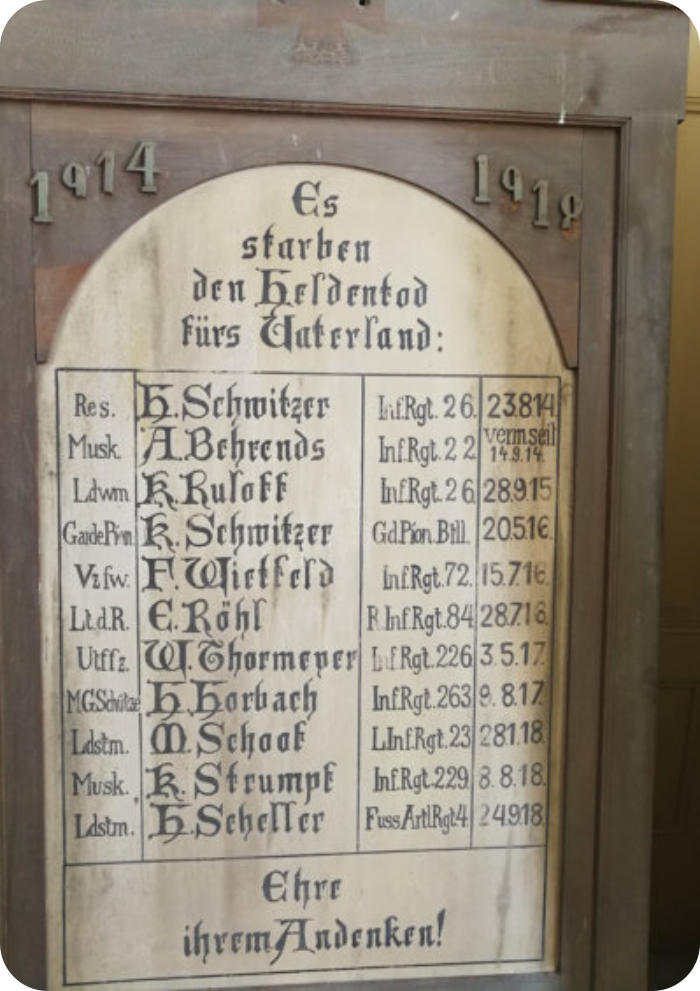 1914 1918
Es
starben
den Heldentod
fürs Vaterland:
Res. H. Schwitzer Inf.Rgt. 26. 23.8.14.
Musk. A. Behrends Inf.Rgt. 22 verm.seit 14.9.14.
Ldwm. K. Ruloff Inf.Rgt. 26. 28.9.15
GardePion. K. Schwitzer Gd.Pion.Btll. 20.5.16.
Vzfw. F. Wietfeld Inf.Rgt.72. 15.7.16.
Lt.d.R. E. Röhl R.Inf.Rgt.84. 28.7.16.
Utffz. W. Thormeyer Inf.Rgt.226. 3.5.17.
M.G.Schütze H. Horbach Inf.Rgt.263 9.8.17.
Ldstm. M. Schaak L.Inf.Rgt.23 28.1.18.
Musk. K. Strumpf Inf.Rgt.229. 8.8.18.
Ldstm. H. Scheller FussArtlRgt4. 24.9.18.
Ehre
ihrem Andenken!